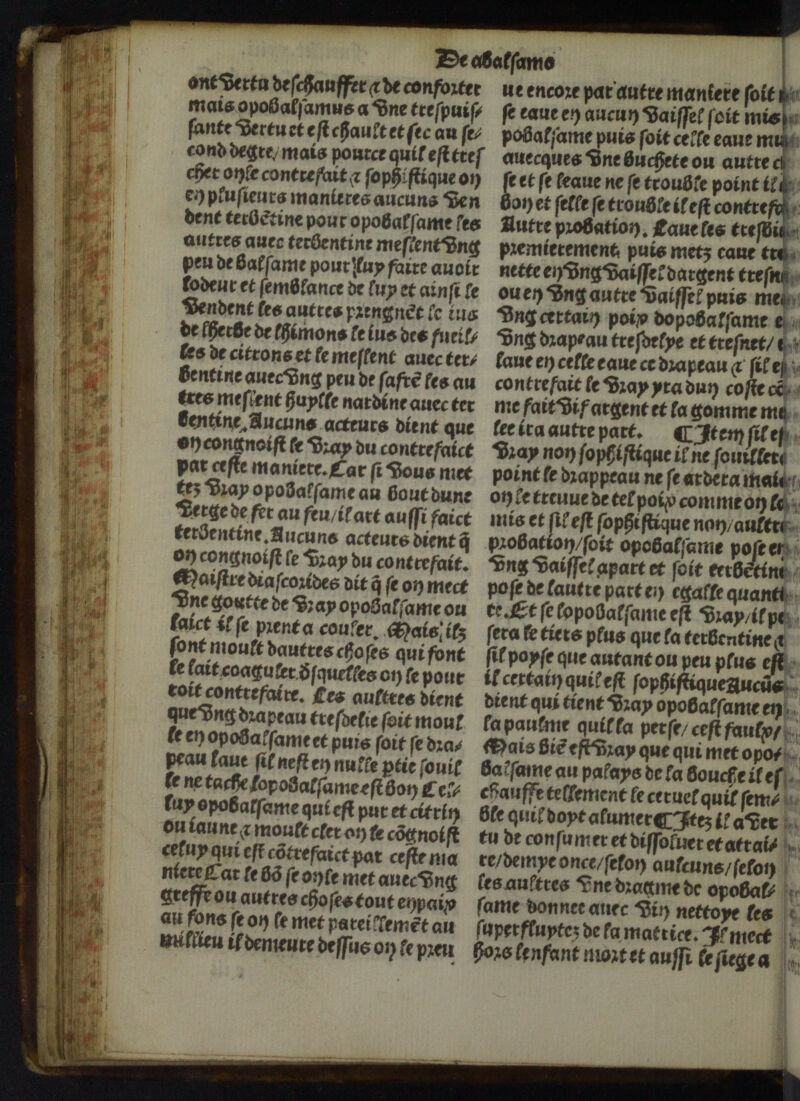 De abalsamo
ont vertu deschauffer & de conforter
mais opobalsamus a vne trespuis/
sante vertu et est chault et sec au se/
cond degre/ mais pource quil est tres
cher on le contrefait & sophistique on
en plusieurs manieres aucuns ven
dent terbētine pour opobalsame les
autres auec terbentine meslent vng
peu de balsame pour luy faire auoir
lodeur et semblance de luy et ainsi le
vendent les autres prengnēt le ius
de lherbe de lhimons le ius des fueil/
les de citrons et le meslent auec ter/
bentine auec vng peu de safrē les au
tres meslent huylle nardine auec ter
bentine. Aucuns acteurs dient que
on congnoist le vray du contrefaict
par ceste maniere. Car si vous met
tez vray opobalsame au bout dune
verge de fer au feu/ il art aussi faict
terbentine. Aucuns acteurs dient q̄
on congnoist le vray du contrefait.
Maistre diascorides dit q̄ se on mect
vne goutte de vray opobalsame ou
laict il se prent a couler. Mais ilz
sont moult dautres choses qui font
le lait coaguler. desquelles on se pour
roit contrefaire. Les aultres dient
que vng drapeau tresdelie soit moul
le en opobalsame et puis soit le dra/
peau laue sil nest en nulle ptie souil
le ne tache lopobalsame est bon Cel/
luy opobalsame qui est pur et citrin
ou iaune & moult cler on le cōgnoist
celuy qui est cōtrefaict par ceste ma
niere Car le bō se on le met auec vng
greffe ou autres choses tout enpaix
au fons se on le met pareillemēt au
millieu il demeure dessus on le preu
ue encore par autre maniere soit
se eaue en aucun vaissel soit mis
pobalsame puis soit celle eaue mu
auecques vne buchete ou autre c
se et se leaue ne se trouble point il
bon et selle se trouble il est contrefa
Autre probation. Laue les tresbi
premierement puis metz eaue tre
nette en vng vaissel dargent tresn
ou en vng autre vaissel puis me
vng certain poix dopobalsame e
vng drapeau tresdelye et tresnet/ e
laue en celle eaue ce drapeau & sil e
contrefait le vray yra dun coste cō
me fait vif argent et la gomme m
lee ira autre part. Item sil es
vray non sophistique il ne souillere
point le drappeau ne se ardera mai
on le treuue de tel poix comme on l
mis et sil est sophistique non/ aultre
probation/ soit opobalsame pose en
vng vaissel apart et soit terbētine
pose de lautre part en egalle quanti
te. Et se lopobalsame est vray/ il pe
sera le tiers plus que la terbentine &
sil poyse que autant ou peu plus est
il certain quil est sophistique Aucūs
dient qui tient vray opobalsame en
la paulme quil la perse/ cest faulx/
Mais biē est vray que qui met opo/
balsame au palays de la bouche il es
chauffe tellement le ceruel quil sem/
ble quil doyt alumer Itez il a ver
tu de consumer et dissoluer et attrai/
re/ demye once/ selon aulcuns/ selon
les aultres vne dragme de opobal/
same donnee auec vin nettoye les
superfluytez de la matrice. Il mect
hors lenfant mort et aussi le siege a